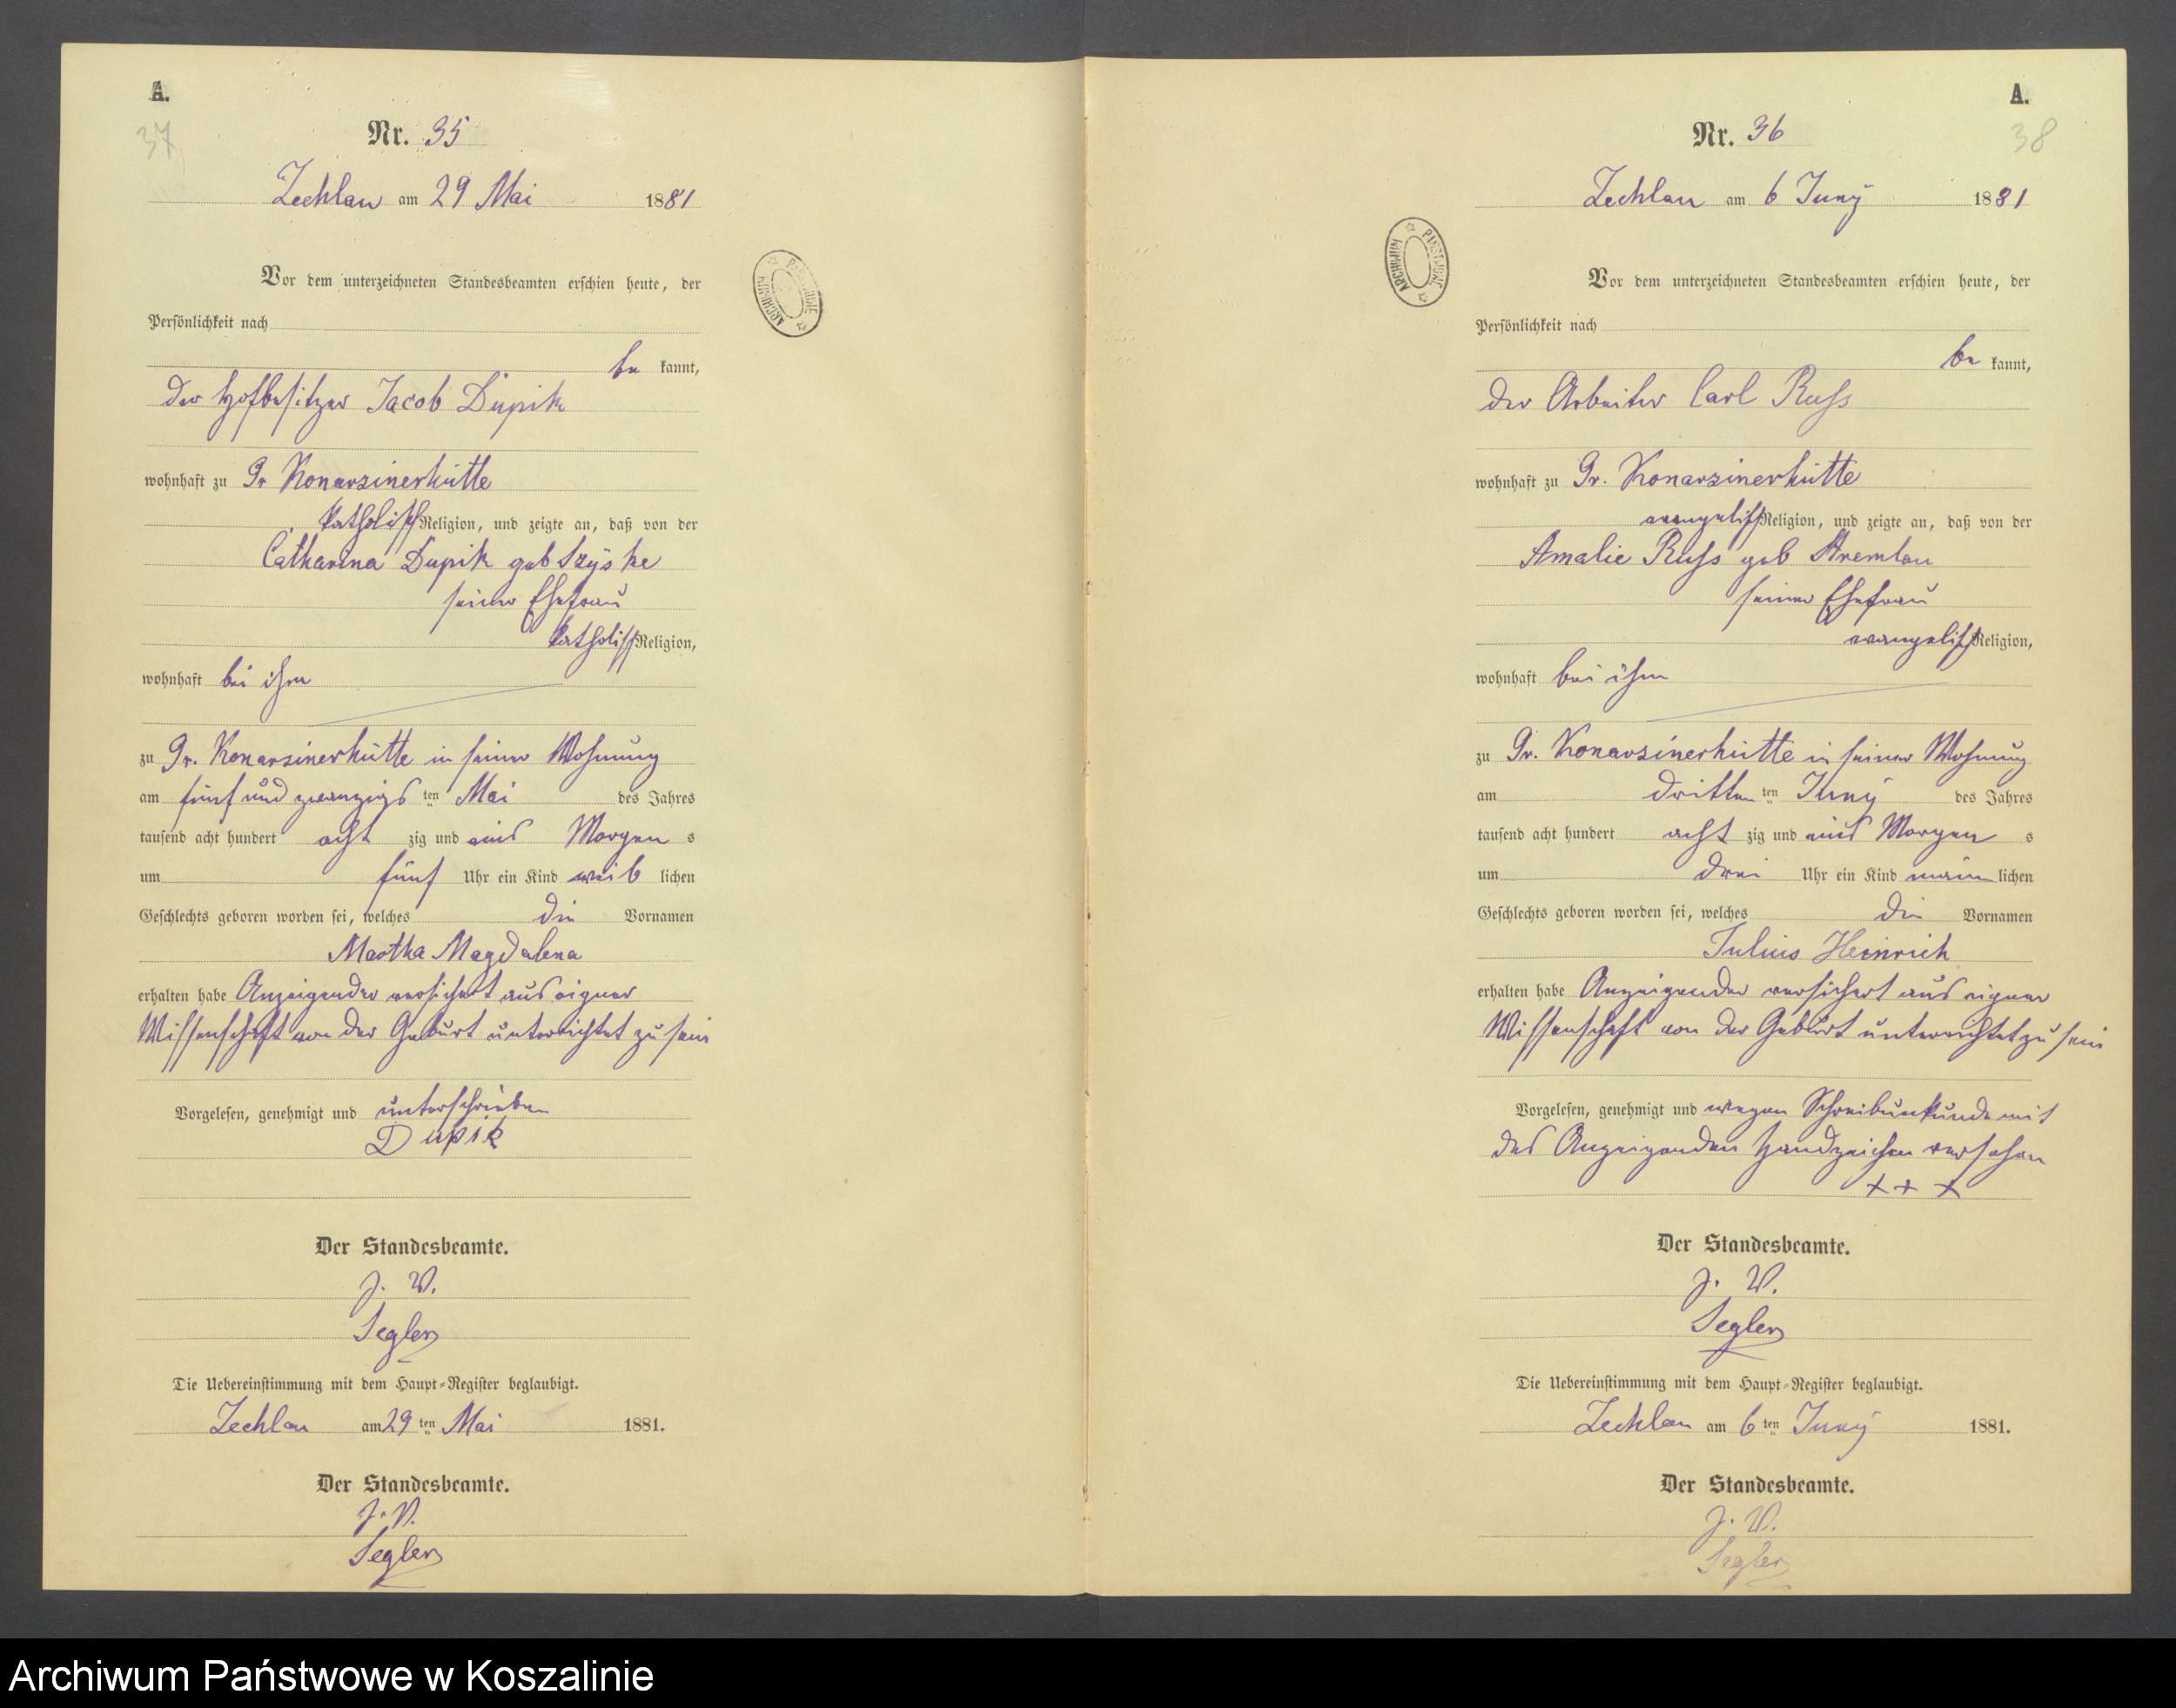 A.
37
Nr. 35
Zechlau am 29 Mai 1881
Vor dem unterzeichneten Standesbeamten erschien heute, der
Persönlichkeit nach
be kannt,
der Hofbesitzer Jacob Dupik
wohnhaft zu Gr Konarzinerhütte
katholisch Religion, und zeigte an, daß von der
Catharina Dupik geb Szyske
seiner Ehefrau
katholisch Religion,
wohnhaft bei ihm
zu Gr. Konarzinerhütte in seiner Wohnung
am fünf und zwanzigs ten Mai des Jahres
tausend acht hundert acht zig und eins Morgen s
um fünf Uhr ein Kind weib lichen
Geschlechts geboren worden sei, welches die Vornamen
Martha Magdalena
erhalten habe Anzeigender versichert aus eigner
Wissenschaft von der Geburt unterrichtet zu sein
Vorgelesen, genehmigt und unterschrieben
Dupik
Der Standesbeamte.
J. V.
Segler
Die Uebereinstimmung mit dem Haupt-Register beglaubigt.
Zechlau am 29 ten Mai 1881.
Der Standesbeamte.
J. V.
Segler
ARCHIWUM PAŃSTWOWE
A.
38
Nr. 36
Zechlau am 6 Juny 1881
ARCHIWUM PAŃSTWOWE
Vor dem unterzeichneten Standesbeamten erschien heute, der
Persönlichkeit nach
be kannt,
der Arbeiter Carl Russ
wohnhaft zu Gr. Konarzinerhütte
evangelisch Religion, und zeigte an, daß von der
Amalie Russ geb Stremlau
seiner Ehefrau
evangelisch Religion,
wohnhaft bei ihm
zu Gr. Konarzinerhütte in seiner Wohnung
am dritten ten Juny des Jahres
tausend acht hundert acht zig und eins Morgen s
um drei Uhr ein Kind männ lichen
Geschlechts geboren worden sei, welches die Vornamen
Julius Heinrich
erhalten habe Anzeigender versichert aus eigner
Wissenschaft von der Geburt unterrichtet zu sein
Vorgelesen, genehmigt und wegen Schreibunkunde mit
des Anzeigenden Handzeichen versehen
+ + +
Der Standesbeamte.
J. V.
Segler
Die Uebereinstimmung mit dem Haupt-Register beglaubigt.
Zechlau am 6 ten Juny 1881.
Der Standesbeamte.
J. V.
Segler
Archiwum Państwowe w Koszalinie